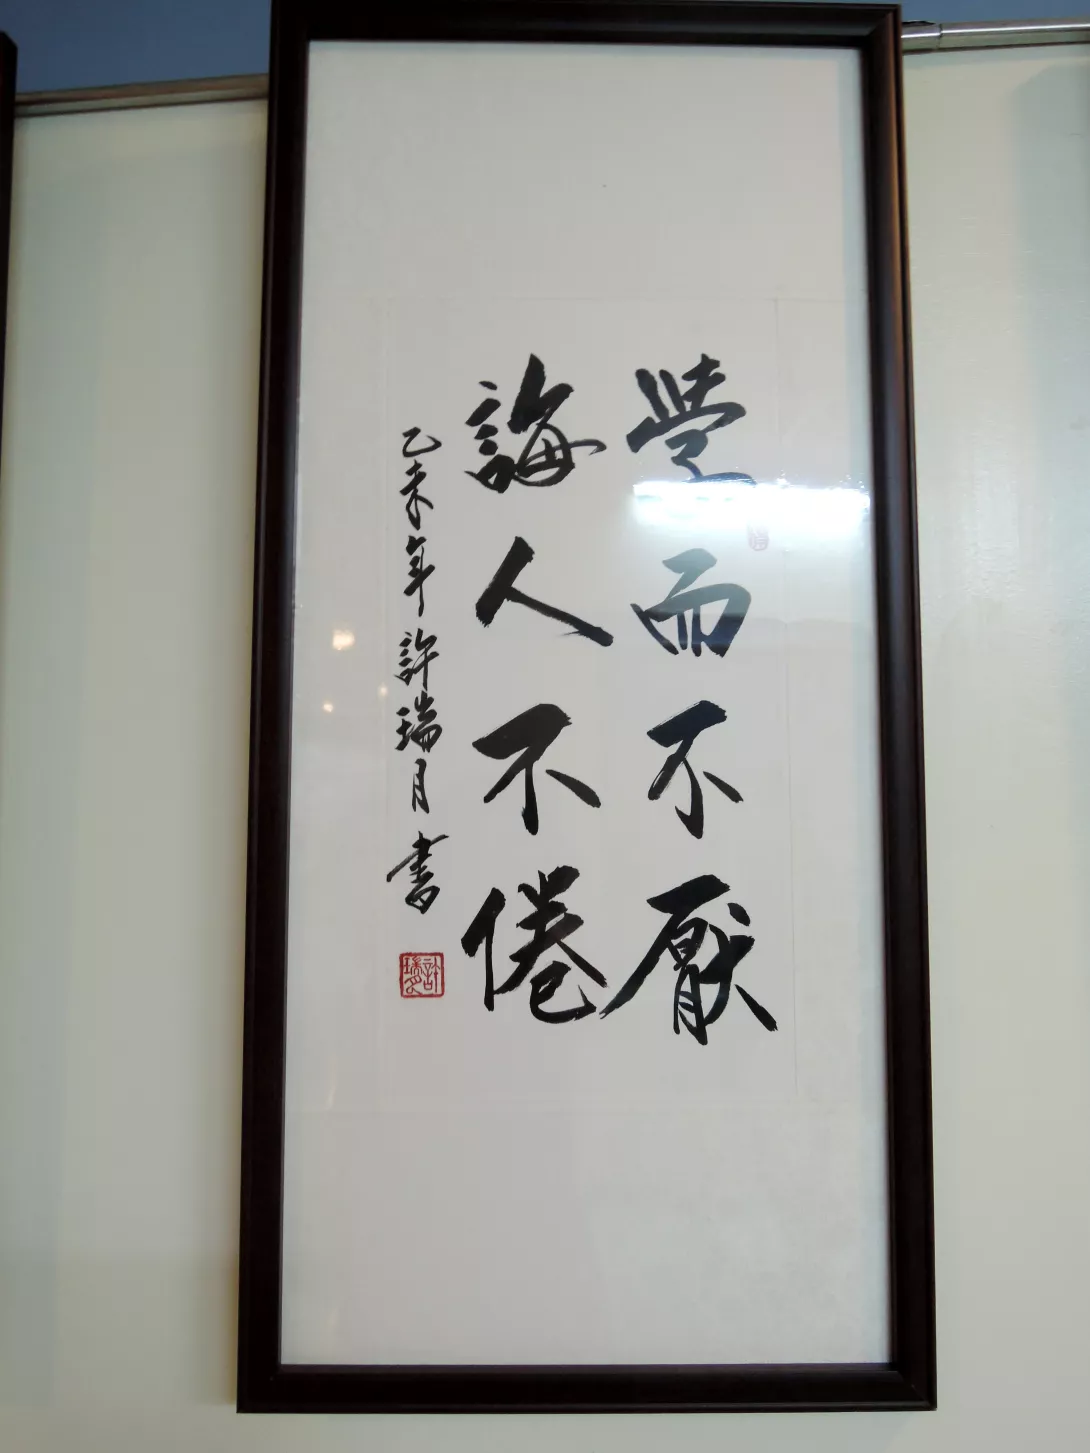 學而不厭
誨人不倦
乙未年許瑞月書